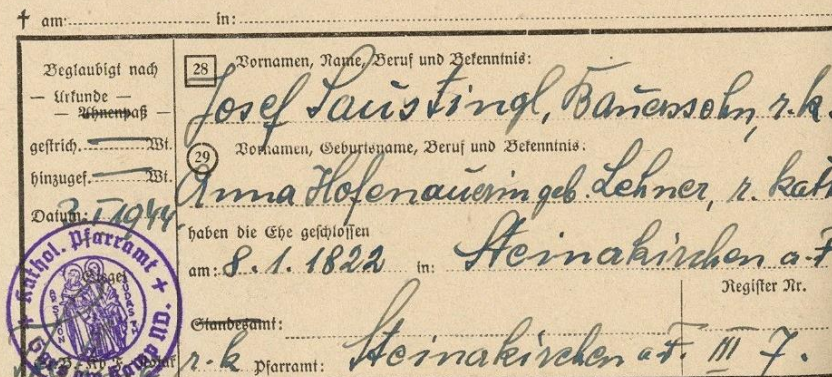 † am: in:
Beglaubigt nach
— Urkunde —
— Ahnenpaß —
gestrich. — Wt.
hinzugef. — Wt.
Datum: 3. I 1944
Siegel
Kathol. Pfarramt +
am Kamp ND.
28 Vornamen, Name, Beruf und Bekenntnis:
Josef Laustingl, Bauerssohn, r. k.
29 Vornamen, Geburtsname, Beruf und Bekenntnis:
Anna Hofenauerin geb. Lehner, r. kath
haben die Ehe geschlossen
am: 8. 1. 1822 in: Steinakirchen a. F
Register Nr.
Standesamt:
r. k Pfarramt: Steinakirchen a. F. III 7.